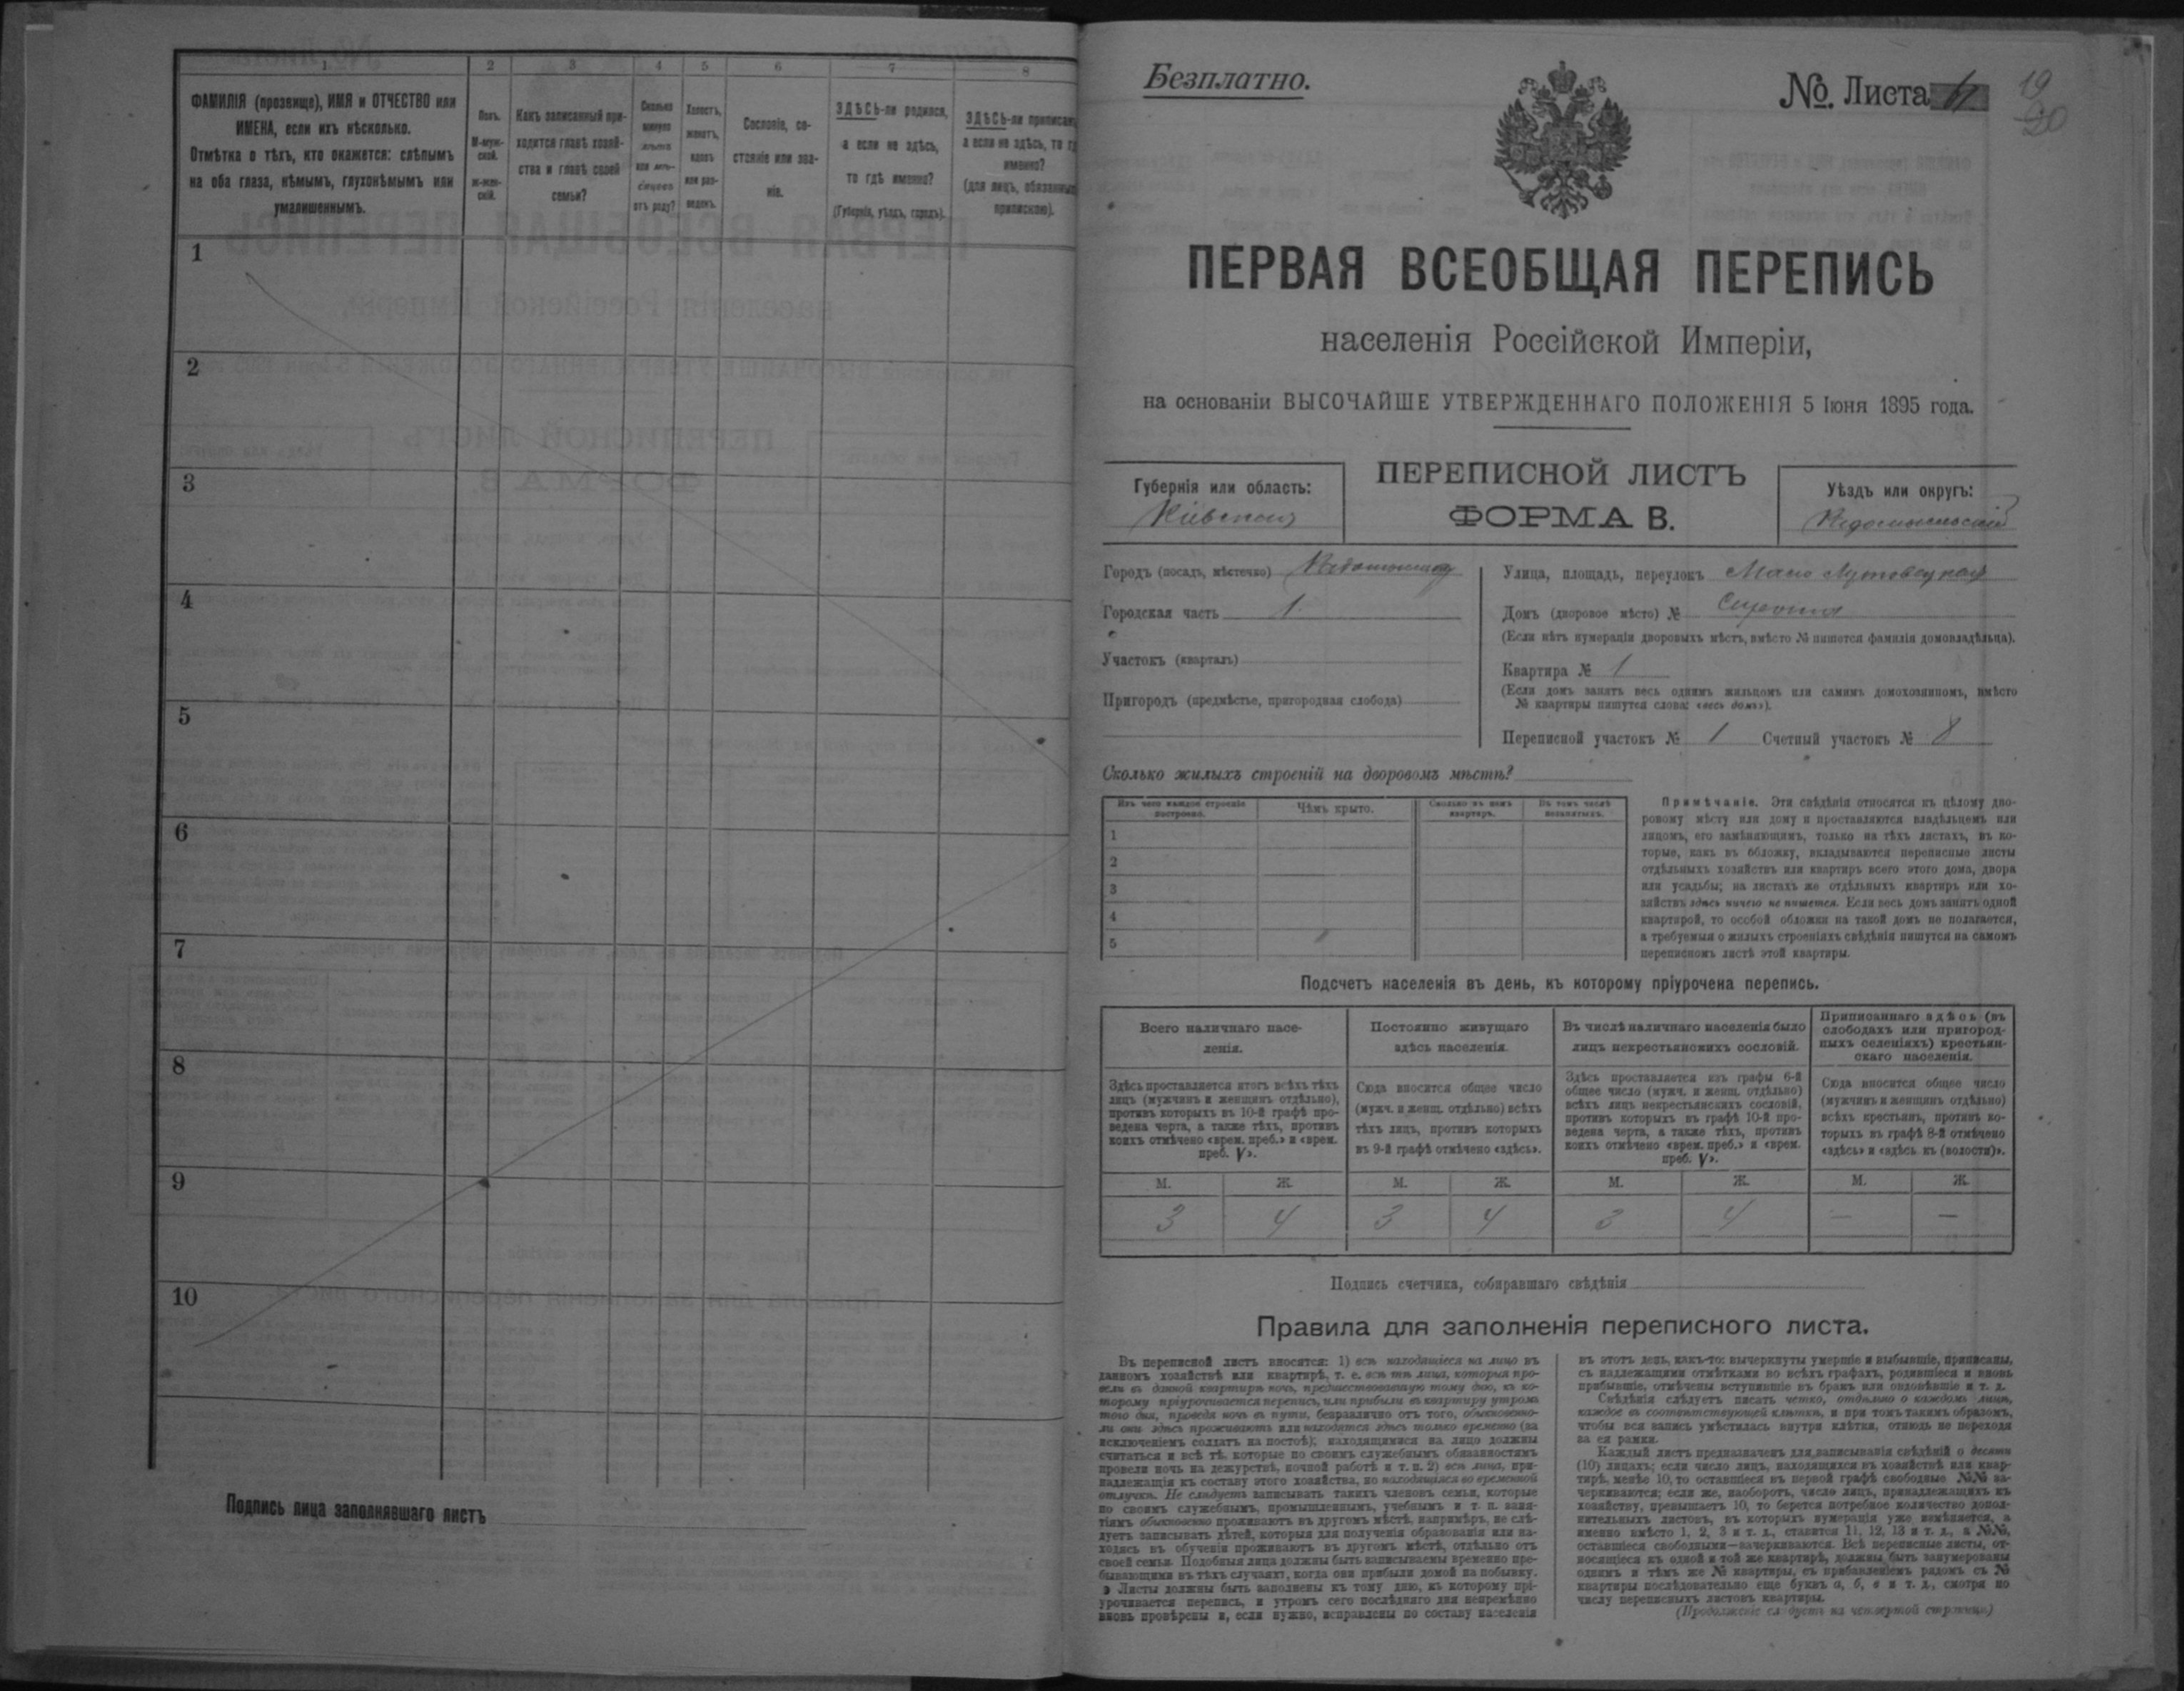 1 2 3 4 5 6 7 8
ФАМИЛІЯ (прозвище), ИМЯ и ОТЧЕСТВО или
ИМЕНА, если ихъ нѣсколько.
Отмѣтка о тѣхъ, кто окажется: слѣпымъ
на оба глаза, нѣмымъ, глухонѣмымъ или
умалишеннымъ.
Полъ.
М-муж-
ской.
Ж-жен-
скій.
Какъ записанный при-
ходится главѣ хозяй-
ства и главѣ своей
семьи?
Сколько
минуло
лѣтъ
или мѣ-
сяцевъ
отъ роду?
Холостъ,
женатъ,
вдовъ
или раз-
веденъ.
Сословіе, со-
стояніе или зва-
ніе.
ЗДѢСЬ-ли родился,
а если не здѣсь,
то гдѣ именно?
(Губернія, уѣздъ, городъ).
ЗДѢСЬ-ли
а если не здѣсь, то
именно?
(для лицъ,
припискою).
1
2
3
4
5
6
7
8
9
10
Подпись лица заполнявшаго листъ
Безплатно.
№. Листа
19
20
ПЕРВАЯ ВСЕОБЩАЯ ПЕРЕПИСЬ
населенія Россійской Имперіи,
на основаніи ВЫСОЧАЙШЕ УТВЕРЖДЕННАГО ПОЛОЖЕНІЯ 5 Іюня 1895 года.
Губернія или область:
Кіевская
ПЕРЕПИСНОЙ ЛИСТЪ
ФОРМА В.
Уѣздъ или округъ:
Городъ (посадъ, мѣстечко)
Городская часть 1.
Участокъ (кварталъ)
Пригородъ (предмѣстье, пригородная слобода)
Улица, площадь, переулокъ
Домъ (дворовое мѣсто) №
(Если нѣтъ нумераціи дворовыхъ мѣстъ, вмѣсто № пишется фамилія домовладѣльца).
Квартира № 1
(Если домъ занятъ весь однимъ жильцомъ или самимъ домохозяиномъ, вмѣсто
№ квартиры пишутся слова: «весь домъ»).
Переписной участокъ № 1 Счетный участокъ № 8
Сколько жилыхъ строеній на дворовомъ мѣстѣ?
Изъ чего каждое строеніе
построено.
Чѣмъ крыто.
Сколько въ немъ
квартиръ.
Въ томъ числѣ
незанятыхъ.
1
2
3
4
5
Примѣчаніе. Эти свѣдѣнія относятся къ цѣлому дво-
ровому мѣсту или дому и проставляются владѣльцемъ или
лицомъ, его замѣняющимъ, только на тѣхъ листахъ, въ ко-
торые, какъ въ обложку, вкладываются переписные листы
отдѣльныхъ хозяйствъ или квартиръ всего этого дома, двора
или усадьбы; на листахъ же отдѣльныхъ квартиръ или хо-
зяйствъ здѣсь ничего не пишется. Если весь домъ занятъ одной
квартирой, то особой обложки на такой домъ не полагается,
а требуемыя о жилыхъ строеніяхъ свѣдѣнія пишутся на самомъ
переписномъ листѣ этой квартиры.
Подсчетъ населенія въ день, къ которому пріурочена перепись.
Всего наличнаго насе-
ленія.
Здѣсь проставляется итогъ всѣхъ тѣхъ
лицъ (мужчинъ и женщинъ отдѣльно),
противъ которыхъ въ 10-й графѣ про-
ведена черта, а также тѣхъ, противъ
коихъ отмѣчено «врем. преб.» и «врем.
преб. V».
Постоянно живущаго
здѣсь населенія.
Сюда вносится общее число
(мужч. и женщ. отдѣльно) всѣхъ
тѣхъ лицъ, противъ которыхъ
въ 9-й графѣ отмѣчено «здѣсь».
Въ числѣ наличнаго населенія было
лицъ некрестьянскихъ сословій.
Здѣсь проставляется изъ графы 6-й
общее число (мужч. и женщ. отдѣльно)
всѣхъ лицъ некрестьянскихъ сословій,
противъ которыхъ въ графѣ 10-й про-
ведена черта, а также тѣхъ, противъ
коихъ отмѣчено «врем. преб.» и «врем.
преб. V».
Приписаннаго здѣсь (въ
слободахъ или пригород-
ныхъ селеніяхъ) крестьян-
скаго населенія.
Сюда вносится общее число
(мужчинъ и женщинъ отдѣльно)
всѣхъ крестьянъ, противъ ко-
торыхъ въ графѣ 8-й отмѣчено
«здѣсь» и «здѣсь къ (волости)».
М. Ж. М. Ж. М. Ж. М. Ж.
3 4 3 4 3 4 — —
Подпись счетчика, собиравшаго свѣдѣнія
Правила для заполненія переписного листа.
Въ переписной листъ вносятся: 1) всѣ находящіеся на лицо въ
данномъ хозяйствѣ или квартирѣ, т. е. всѣ тѣ лица, которыя про-
вели въ данной квартирѣ ночь, предшествовавшую тому дню, къ ко-
торому пріурочивается перепись, или прибыли въ квартиру утромъ
того дня, проведя ночь въ пути, безразлично отъ того, обыкновенно-
ли они здѣсь проживаютъ или находятся здѣсь только временно (за
исключеніемъ солдатъ на постоѣ); находящимися на лицо должны
считаться и всѣ тѣ, которые по своимъ служебнымъ обязанностямъ
провели ночь на дежурствѣ, ночной работѣ и т. п. 2) всѣ лица, при-
надлежащія къ составу этого хозяйства, но находящіяся во временной
отлучкѣ. Не слѣдуетъ записывать такихъ членовъ семьи, которые
по своимъ служебнымъ, промышленнымъ, учебнымъ и т. п. заня-
тіямъ обыкновенно проживаютъ въ другомъ мѣстѣ, напримѣръ, не слѣ-
дуетъ записывать дѣтей, которыя для полученія образованія или на-
ходясь въ обученіи проживаютъ въ другомъ мѣстѣ, отдѣльно отъ
своей семьи. Подобныя лица должны быть записываемы временно пре-
бывающими въ тѣхъ случаяхъ, когда они прибыли домой на побывку.
Листы должны быть заполнены къ тому дню, къ которому прі-
урочивается перепись, и утромъ сего послѣдняго дня непремѣнно
вновь провѣрены и, если нужно, исправлены по составу населенія
въ этотъ день, какъ-то: вычеркнуты умершіе и выбывшіе, приписаны,
съ надлежащими отмѣтками во всѣхъ графахъ, родившіеся и вновь
прибывшіе, отмѣчены вступившіе въ бракъ или овдовѣвшіе и т. д.
Свѣдѣнія слѣдуетъ писать четко, отдѣльно о каждомъ лицѣ,
каждое въ соотвѣтствующей клѣткѣ, и при томъ такимъ образомъ,
чтобы вся запись умѣстилась внутри клѣтки, отнюдь не переходя
за ея рамки.
Каждый листъ предназначенъ для записыванія свѣдѣній о десяти
(10) лицахъ; если число лицъ, находящихся въ хозяйствѣ или квар-
тирѣ, менѣе 10, то оставшіеся въ первой графѣ свободные №№ за-
черкиваются; если же, наоборотъ, число лицъ, принадлежащихъ къ
хозяйству, превышаетъ 10, то берется потребное количество допол-
нительныхъ листовъ, въ которыхъ нумерація уже измѣняется, а
именно вмѣсто 1, 2, 3 и т. д., ставится 11, 12, 13 и т. д., а №№,
оставшіеся свободными—зачеркиваются. Всѣ переписные листы, от-
носящіеся къ одной и той же квартирѣ, должны быть занумерованы
однимъ и тѣмъ же № квартиры, съ прибавленіемъ рядомъ съ №
квартиры послѣдовательно еще буквъ а, б, в и т. д., смотря по
числу переписныхъ листовъ квартиры.
(Продолженіе слѣдуетъ на четвертой страницѣ)